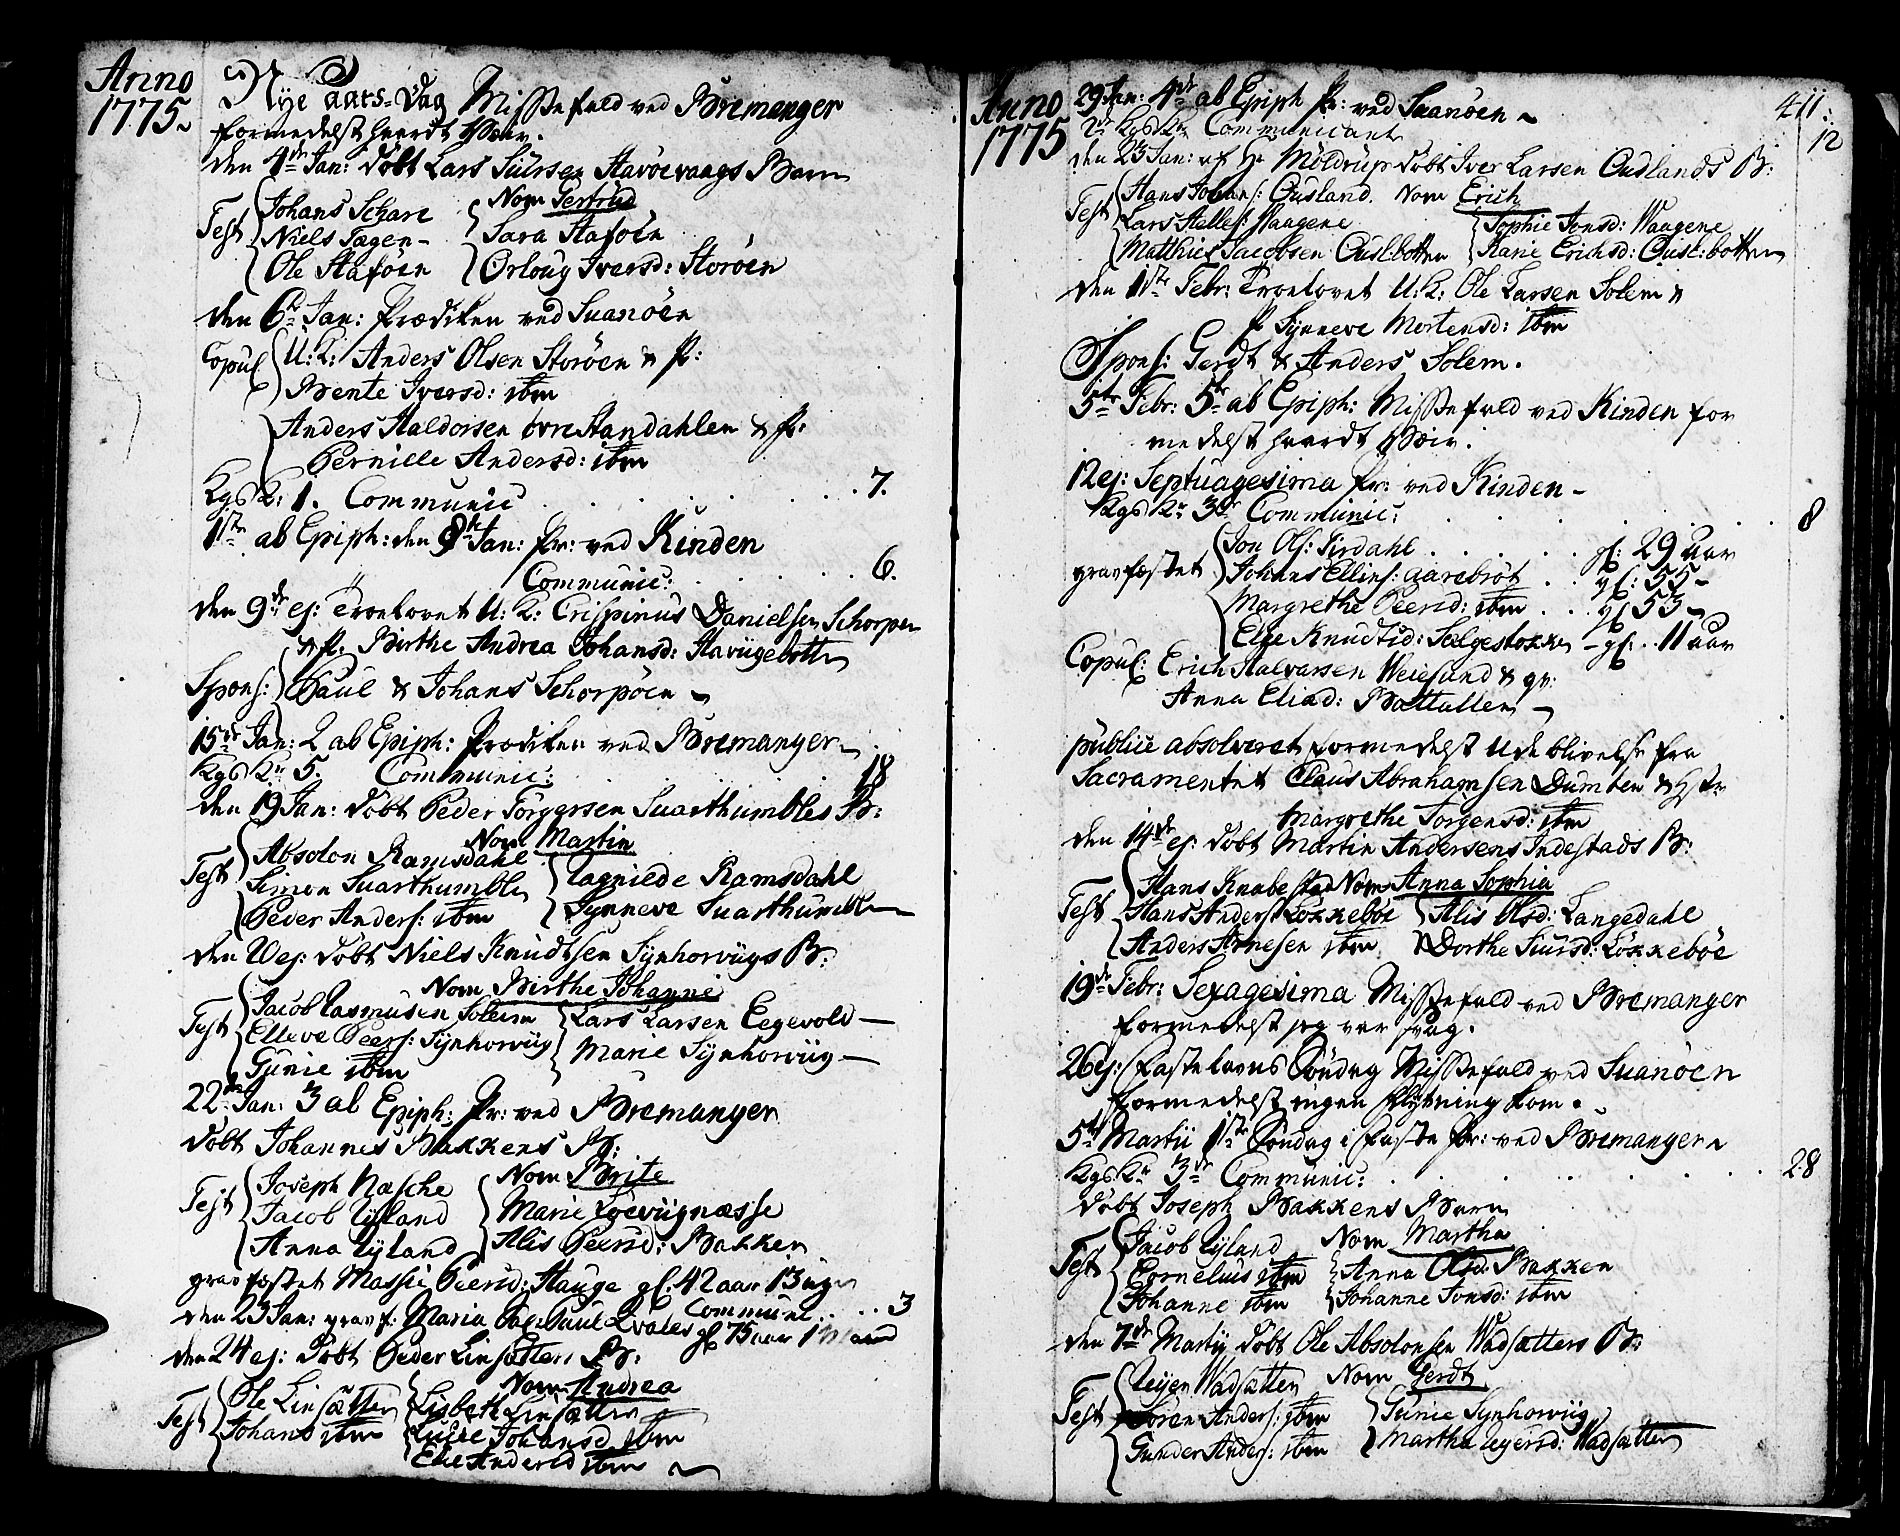 Anno
1775
Nye aars-Dag Missefald ved Bremanger
formedelst haardt Veir.
den 4de Jan: döbt Lars Siürsen Havöevaags Barn
Nom Gertrud
Test Johans Schare
Niels Tagen
Ole Haföen
Sara Haföen
Orloug Iversd: Storöen
den 6te Jan: Prædiken ved Suanöen
Copul U: K: Anders Olsen Storöen & P:
Bente Iversd: ibm
Anders Haldorsen övre Standahlen & P:
Pernille Andersd: ibm
Kgs K: 1. Communic . . . 7.
1ste ab Epiph: den 8de Jan: Pr: ved Kinden
Communic: . . . 6.
den 9de ej: Trolovet U: K: Crispinus Danielsen Schorpen
& P. Birthe Andrea Johansd: Havügebotten
Spons: Paul & Johans Schorpöen
15de Jan: 2 ab Epiph: Prædiken ved Bremanger
Kgs K: 5. Communic: . . 18
den 19 Jan: döbt Peder Torgersen Suarthumbles B:
Nom Martin
Test Absolon Ramsdahl
Simon Suarthumble
Peder Anders: ibm
Ragnilde Ramsdahl
Synneve Suarthumble
den 20 ej: döbt Niels Knudtsen Synhorvügs B:
Nom Birthe Johanne
Test Jacob Rasmusen Soleim
Elleve Peers: Synhorvüg
Gunie ibm
Lars Larsen Eegevold
Marie Synhorvüg
22de Jan: 3 ab Epiph: Pr: ved Bremanger
döbt Johannes Bakkens B:
Nom Brite
Test Joseph Næsche
Jacob Ryland
Anna Ryland
Marie Loevügnæsse
Alis Peersd: Bakken
gravfæstet Massie Peersd: Hauge gl. 42 aar 13 uger
Communic. . . . 3
den 23 Jan: gravf: Maria Paul Qvales gl 75 aar 1 Maaned
den 24 ej: döbt Peder Linsætters B:
Nom Andrea
Test Ole Linsætter
Johans ibm
Lisbeth Linsætter
Lucie Johansd ibm
Else Andersd ibm
Anno
1775
411:
12
29 Jan: 4de ab Epiph Pr: ved Suanöen
Kgs K: Communicant
den 23 Jan: af Hr Möldrup döbt Iver Larsen Ouslands B:
Nom Erich
Test Hans Johans: Ousland.
Lars Halles: Waagene
Matthies Jacobsen Ouslbotten
Sophie Jonsd: Waagene
Karie Erichsd: Ousl:botten
den 1ste Febr: Trolovet U: K: Ole Larsen Solem &
P Synneve Mortensd: ibm
Spons: Gerdt & Anders Solem.
5te Febr: 5te ab Epiph: Missefald ved Kinden for
medelst haardt Veir.
12 ej: Septuagesima Pr: ved Kinden
Kgs K: 3de Communic: . . . 8
gravfæstet Jon Ols: Tirdahl . . . gl: 29 aar
Johans Ellins: Aarebröt . . gl: 55
Margrethe Peersd: ibm . . . gl 53
Else Knudtsd: Selgestokken gl: . . 11 aar
Copul: Erich Halvarsen Weiesund & P:
Anna Eliad: Battallen
publice absolveret formedelst Udeblivelse fra
Sacramentet Claus Abrahamsen Dumben & Hstr
Margrethe Torgensd: ibm
den 14de ej: döbt Martin Andersens Indestads B:
Nom Anna Sophia
Test Hans Knabestad
Hans Anders: Lökkeböe
Anders Arnesen ibm
Alis Olsd: Langedahl
Dorthe Siursd: Lökkeböe
19de Febr: Sexagesima Missefald ved Bremanger
formedelst jeg var svag.
26 ej: Fastelavns Söndag Missefald ved Suanöen
formedelst ingen Flytning kom.
5te Martii 1ste Söndag i Faste Pr: ved Bremanger
Kgs K: 3de Communic: . . . 28
döbt Joseph Bakkens Barn
Nom Martha
Test Jacob Ryland
Cornelius ibm
Johanne ibm
Anna Olsd: Bakken
Johanne Jonsd: ibm
den 7de Martij döbt Ole Absolonsen Wadsætters B:
Nom Gerdt
Test Reyer Wadsætter
Sören Anders: ibm
Gunder Anders: ibm
Gunie Synhorvüg
Martha Reyersd: Wadsætter